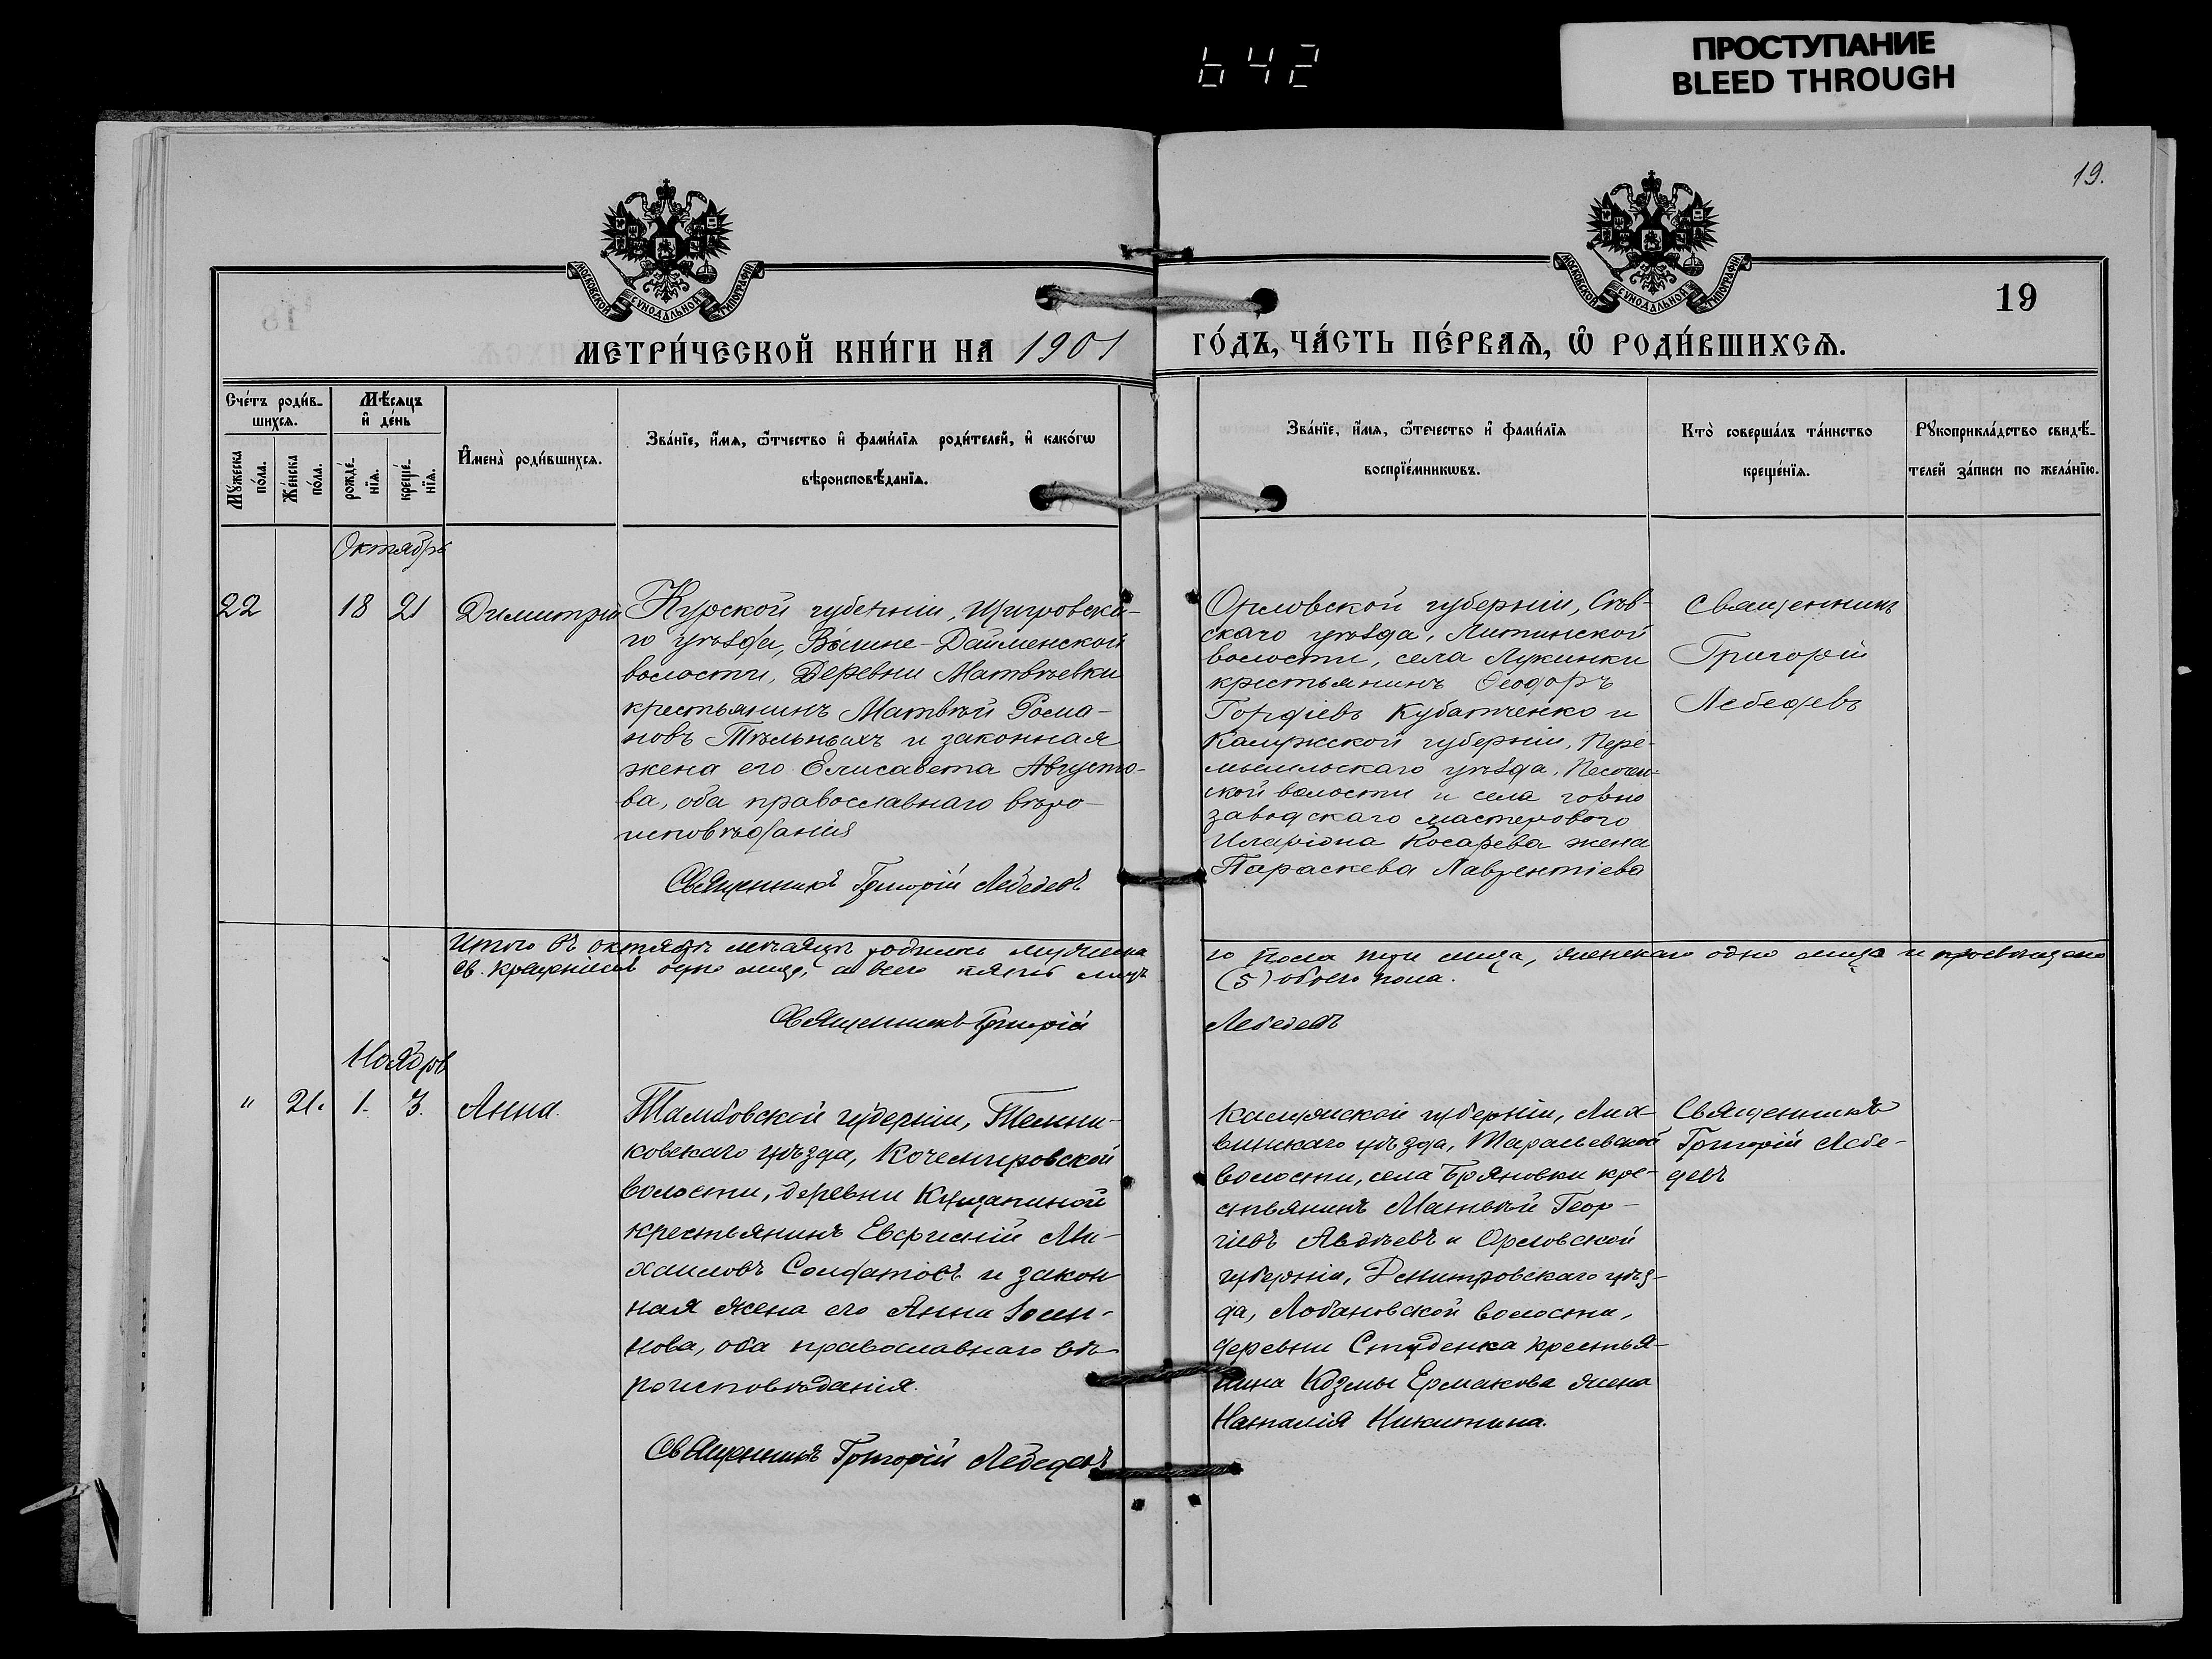 642
ПРОСТУПАНИЕ
BLEED THROUGH
19.
МОСКОВСКОЙ СѴНОДАЛЬНОЙ ТИПОГРАФІИ
МОСКОВСКОЙ СѴНОДАЛЬНОЙ ТИПОГРАФІИ
19
МЕТРИ́ЧЕСКОЙ КНИ́ГИ НА 1901
ГО́ДЪ, ЧА́СТЬ ПЕ́РВАѦ, Ѡ҆ РОДИ́ВШИХСѦ.
Сче́тъ роди́в-
шихсѧ.
Мꙋ́жеска по́ла.
Же́нска по́ла.
Мѣ́сѧцъ
и҆ де́нь
рожде́-
нїѧ.
креще́-
нїѧ.
И҆мена̀ роди́вшихсѧ.
Зва́нїе, и҆́мѧ, ѻ҆́тчество и҆ фами́лїѧ роди́телей, и҆ како́гѡ
вѣроисповѣ́данїѧ.
Зва́нїе, и҆́мѧ, ѻ҆те́чество и҆ фами́лїѧ
воспрїе́мникѡвъ.
Кто̀ соверша́лъ та́инство
креще́нїѧ.
Рꙋкоприкла́дство свидѣ́-
телей за́писи по жела́нїю.
Октябрь
22
18
21
Димитрій
Курской губерніи, Щигровска-
го уѣзда, Выше-Дайменской
волости, Деревни Матвѣевки
крестьянинъ Матвѣй Рома-
новъ Тѣльныхъ и законная
жена его Елисавета Августо-
ва, оба православнаго вѣро-
исповѣданія
Священникъ Григорій Лебедевъ
Орловской губерніи, Сѣв-
скаго уѣзда, Литинской
волости, села Лукинки
крестьянинъ Ѳеодоръ
Гордіевъ Кубатченко и
Калужской губерніи, Пере-
мышльскаго уѣзда, Песочен-
ской волости и села горно
заводскаго мастерового
Иларіона Косарева жена
Параскева Лаврентіева
Священникъ
Григорій
Лебедевъ
Итого въ октябрѣ мѣсяцѣ родилось мужеска
го пола три лица, женскаго одно лицо и просвѣщено
св. крещеніемъ одно лицо, а всего пять лицъ
(5) обоего пола.
Священникъ Григорій
Лебедевъ
Ноябрь
"
21.
1.
3.
Анна.
Тамбовской губерніи, Темни-
ковскаго уѣзда, Кочемировской
волости, деревни Кущапиной
крестьянинъ Евфимій Ми-
хаиловъ Солдатовъ и закон-
ная жена его Анна Іоен-
нова, оба православнаго вѣ-
роисповѣданія.
Священникъ Григорій Лебедевъ
Калужской губерніи, Лих-
винскаго уѣзда,
волости, села Бряновки кре-
стьянинъ Матвѣй Геор-
гіевъ Авдѣевъ и Орловской
губерніи, Дмитровскаго уѣз-
да, Лобановской волости,
деревни Студенка крестья-
нина Козмы Ермакова жена
Наталія Никитина.
Священникъ
Григорій Лебе-
девъ